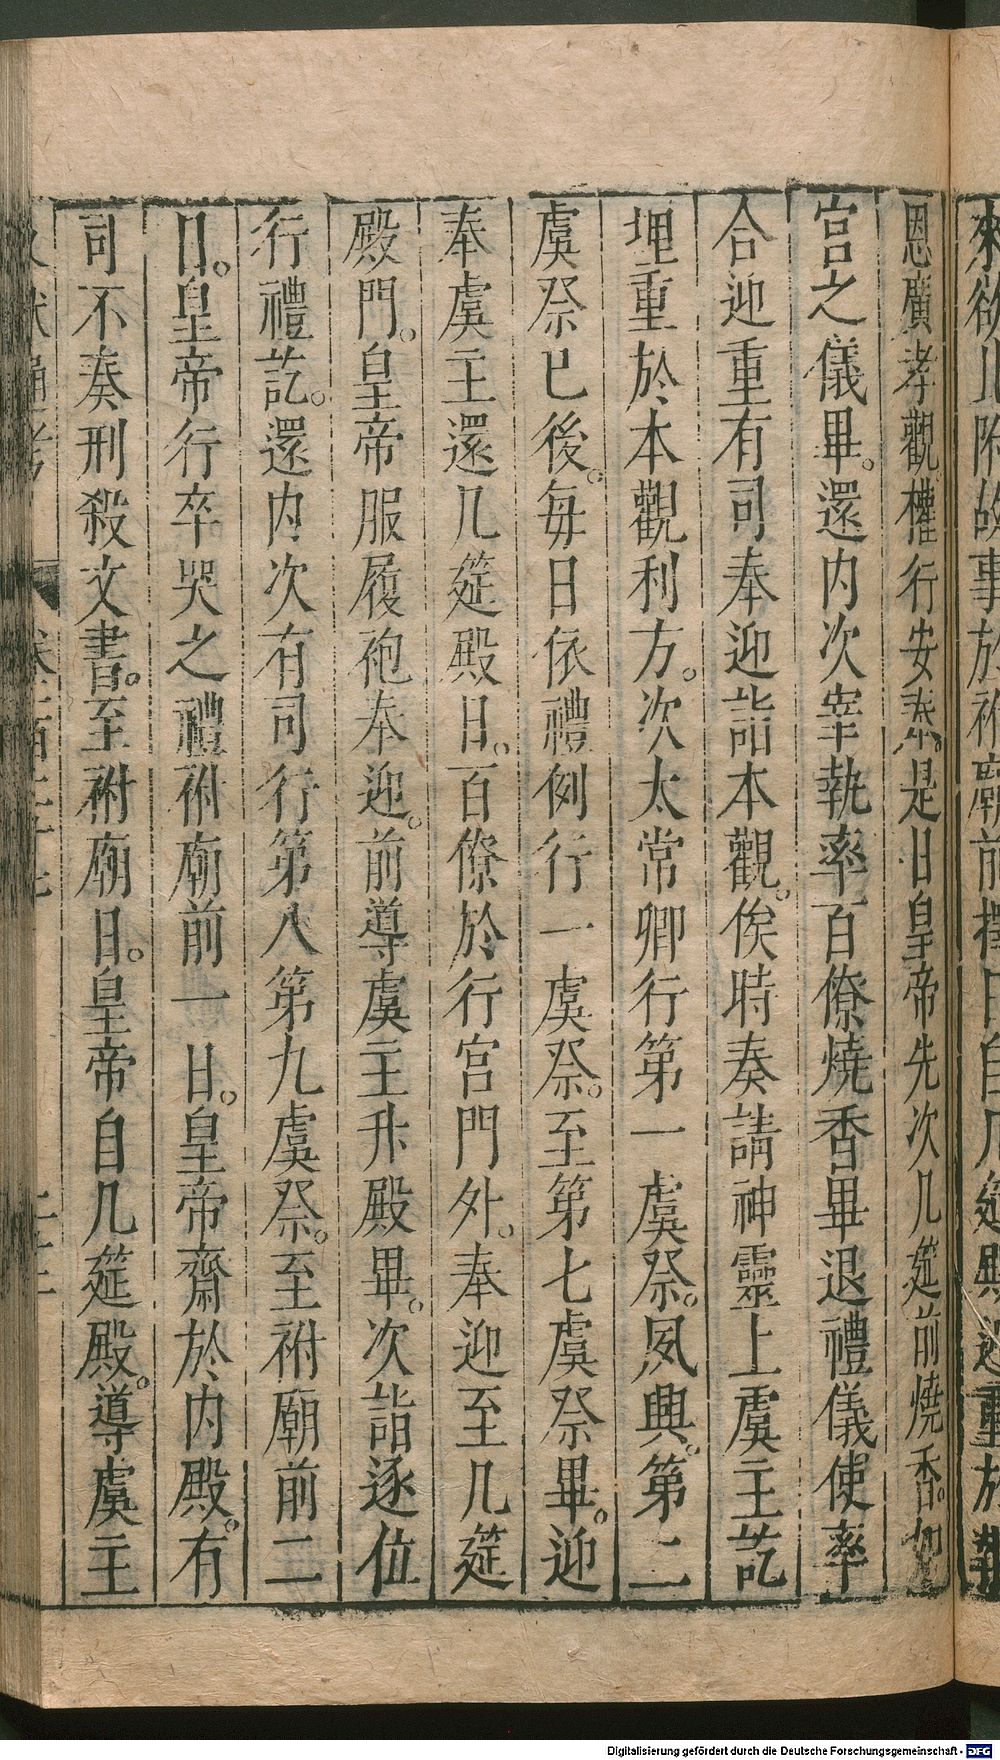 來欲
附故事於祔廟前擇日自几筵與迎重於報
恩廣孝觀權行安奉。是日皇帝先次几筵前燒香。如
宮之儀畢。還内次宰執率百僚燒香畢退禮儀使率
合迎重有司奉迎詣本觀。俟時奏請神靈上虞主訖
埋重於本觀利方。次太常卿行第一虞祭。夙興。第二
虞祭已後。每日依禮例行一虞祭。至第七虞祭畢。迎
奉虞主還几筵殿日。百僚於行宮門外。奉迎至几筵
殿門。皇帝服履袍奉迎。前導虞主升殿畢。次詣逐位
行禮訖。還内次有司行第八第九虞祭。至祔廟前二
日。皇帝行卒哭之禮祔廟前一日。皇帝齋於内殿。有
司不奏刑殺文書。至祔廟日。皇帝自几筵殿。導虞主
通考
Digitalisierung gefördert durch die Deutsche Forschungsgemeinschaft - DFG